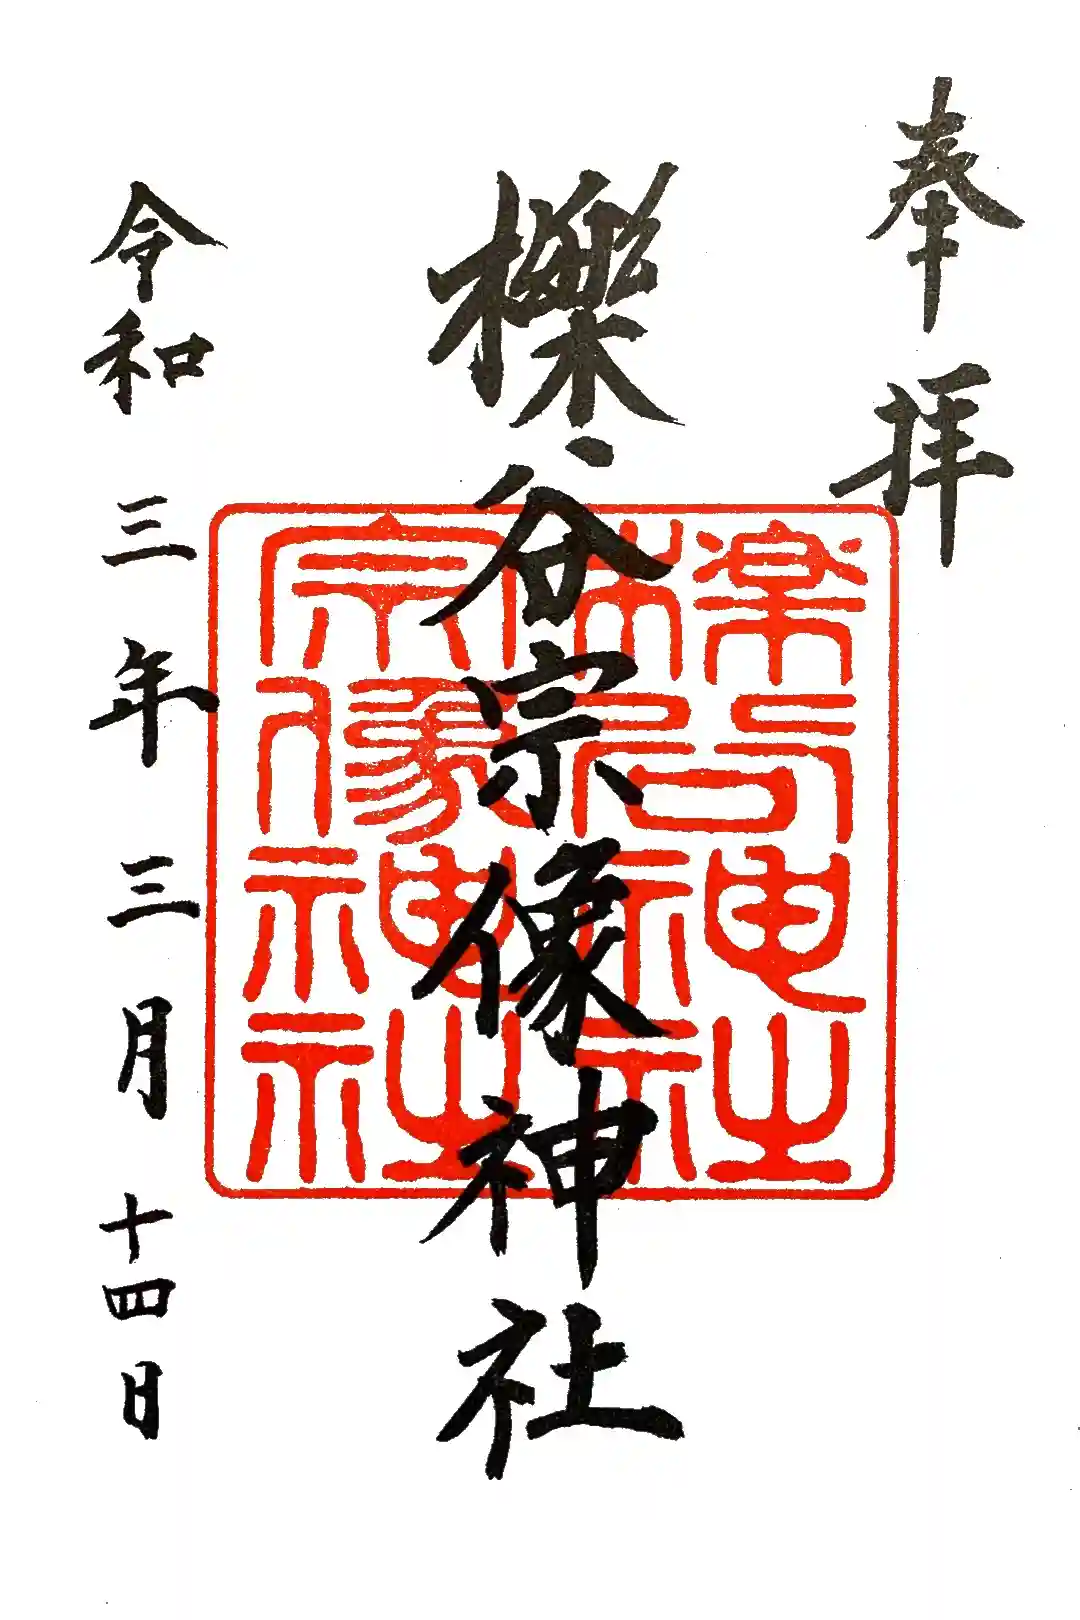 奉拝
櫟谷宗像神社
令和三年三月十四日
櫟谷神社
宗像神社